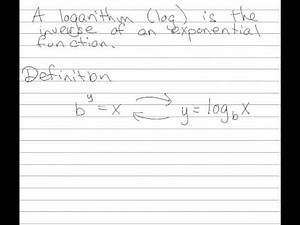 A logarithm (log) is the
inverse of an exponential
function.
Definition
b^y = x ⇄ y = log_b x